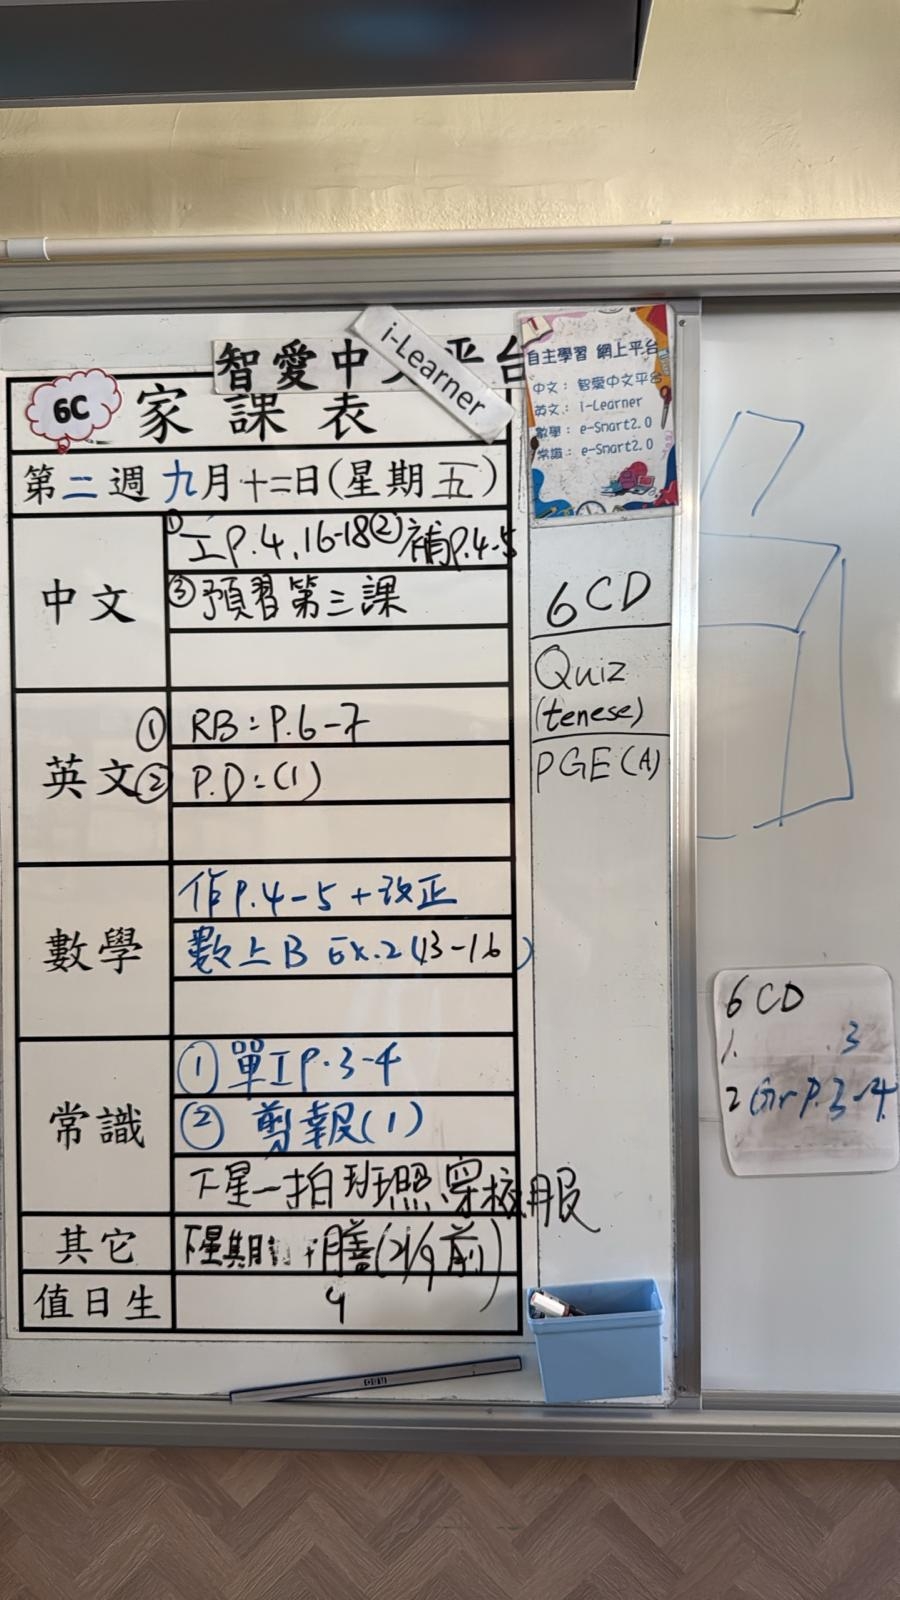 智愛中文平台
i-Learner
6C
家課表
第二週九月十二日(星期五)
中文
①工P.4,16-18②補P.4-5
③預習第三課
英文
① RB:P.6-7
② P.D:(1)
數學
作P.4-5+改正
數上B Ex.2(13-16)
常識
①單工P.3-4
② 剪報(1)
下星一拍班照,穿校服
其它
下星期 膳(21/9前)
值日生
4
1
自主學習 網上平台
中文: 智愛中文平台
英文: i-Learner
數學: e-Smart2.0
常識: e-Smart2.0
6CD
Quiz
(tenese)
PGE(A)
6CD
1. .3
2 Gr P.3-4